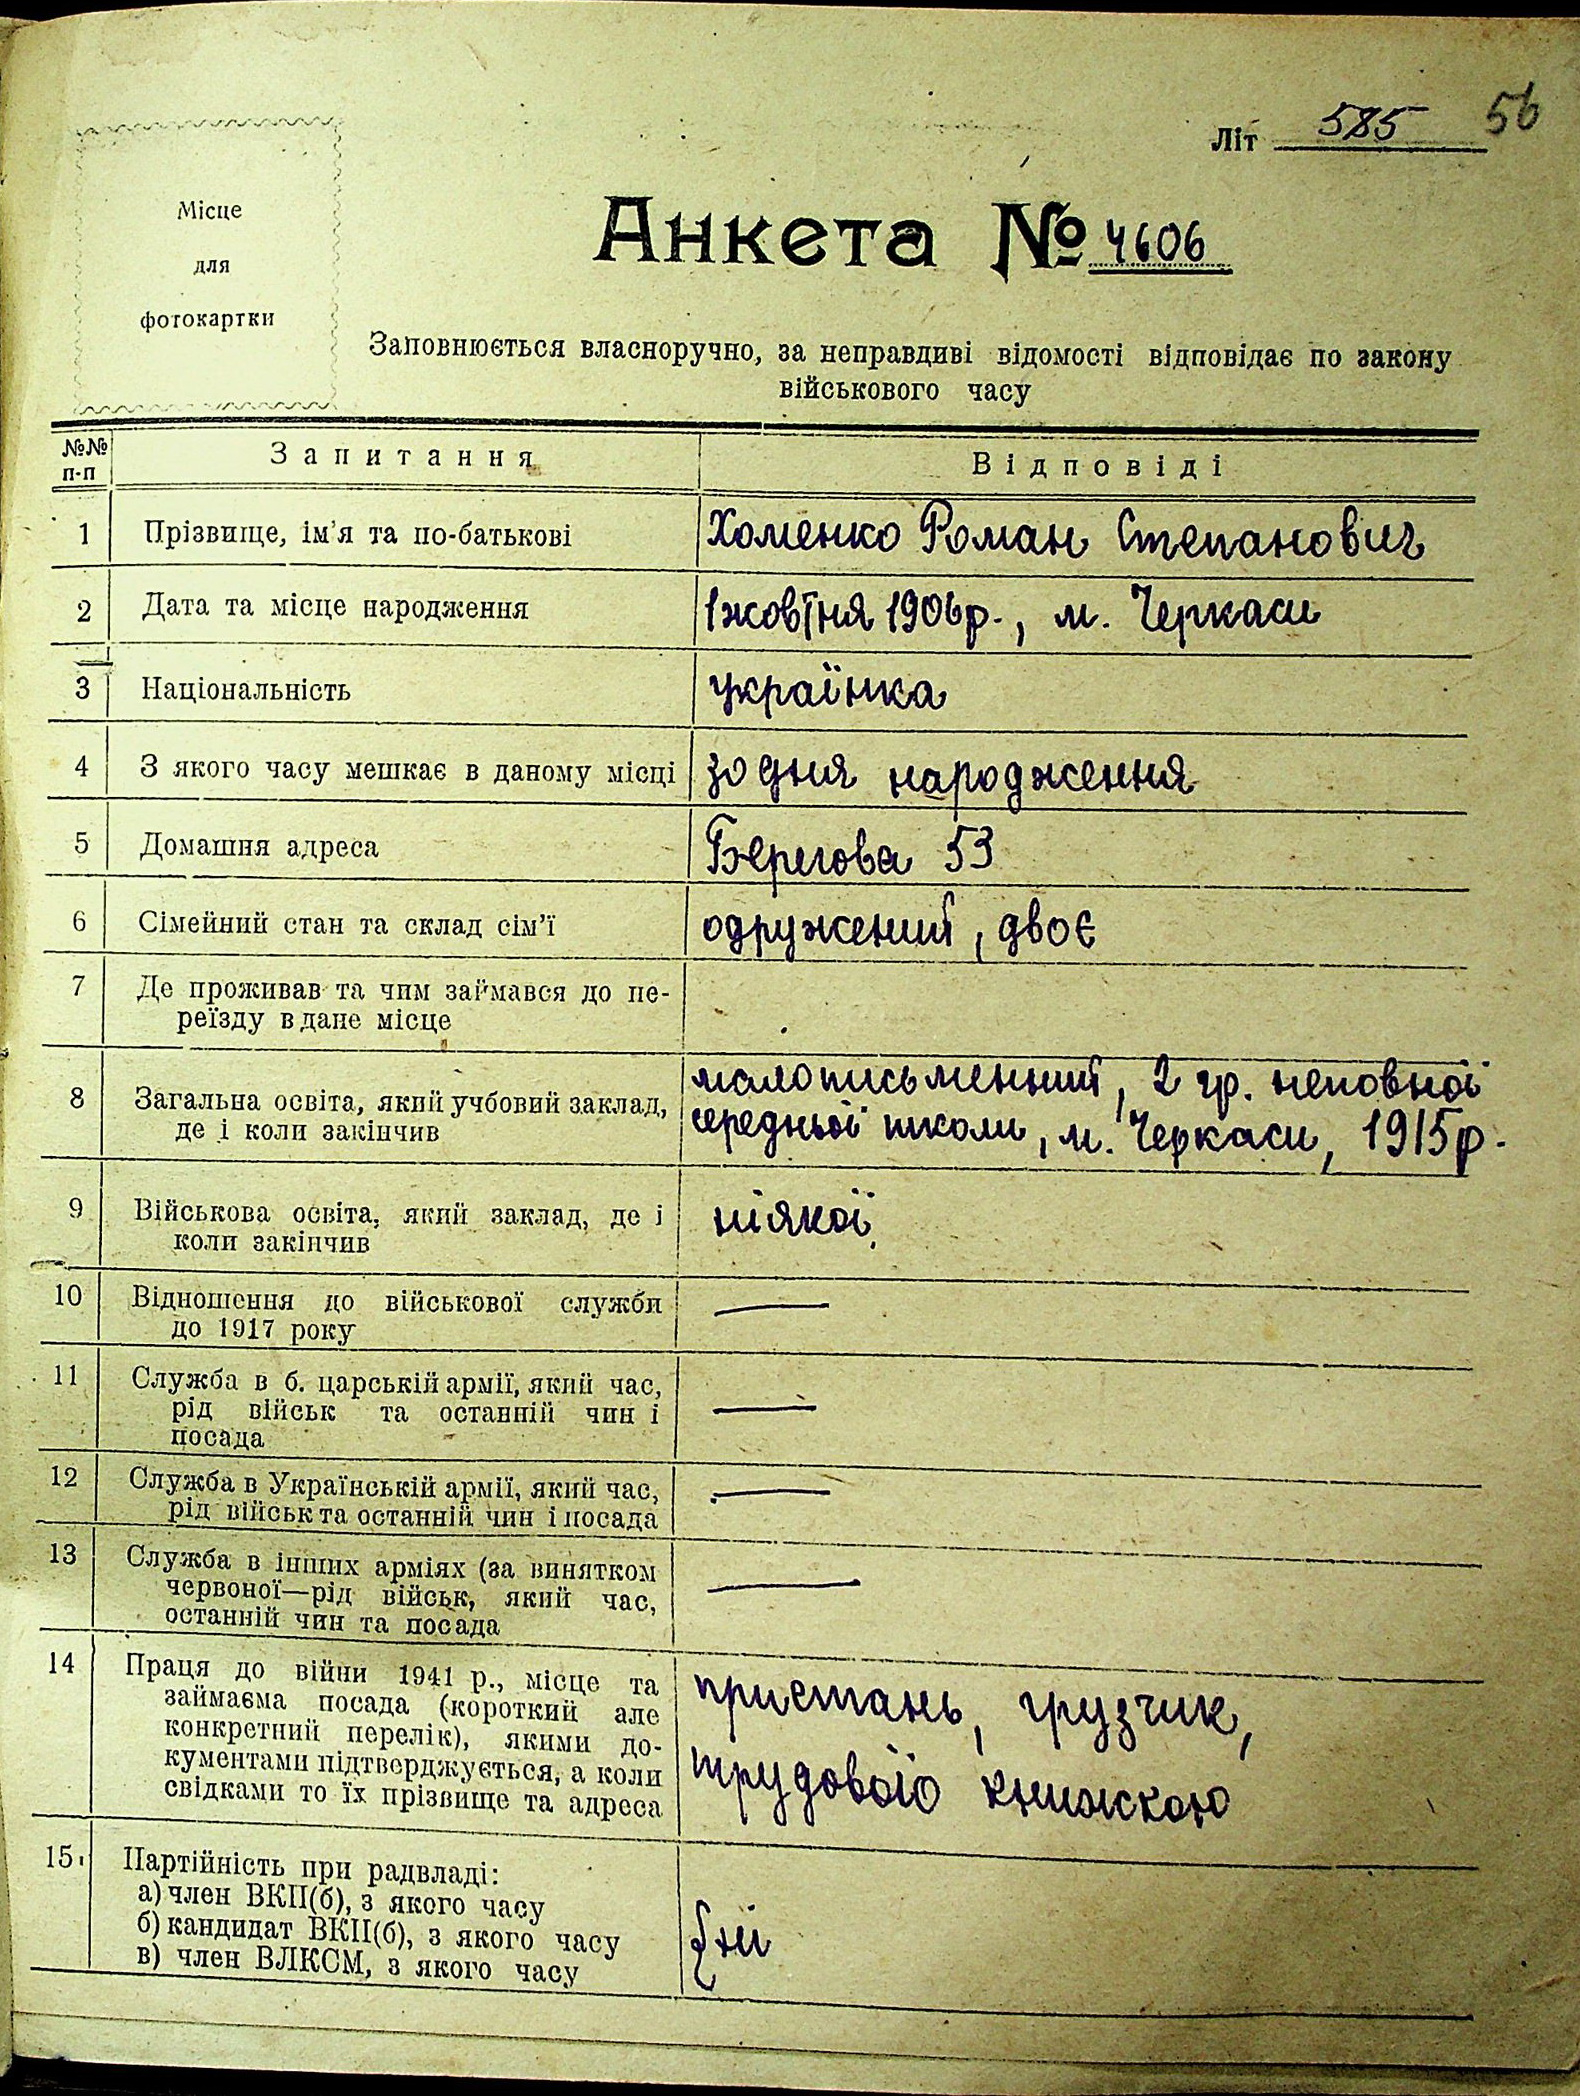 Літ 585 56
Місце
для
фотокартки
Анкета № 4606
Заповнюється власноручно, за неправдиві відомості відповідає по закону
військового часу
№№ п-п Запитання Відповіді
1 Прізвище, ім'я та по-батькові Хоменко Роман Степанович
2 Дата та місце народження 1 жовтня 1906 р., м. Черкаси
3 Національність українка
4 З якого часу мешкає в даному місці зо дня народження
5 Домашня адреса Берегова 53
6 Сімейний стан та склад сім'ї одружений, двоє
7 Де проживав та чим займався до пе-
реїзду в дане місце
малописьменний, 2 гр. неповної
8 Загальна освіта, який учбовий заклад, середньої школи, м. Черкаси, 1915 р.
де і коли закінчив
9 Військова освіта, який заклад, де і ніякої
коли закінчив
10 Відношення до військової служби —
до 1917 року
11 Служба в б. царській армії, який час,
рід військ та останній чин і —
посада
12 Служба в Українській армії, який час, —
рід військ та останній чин і посада
13 Служба в інших арміях (за винятком
червоної—рід військ, який час, —
останній чин та посада
14 Праця до війни 1941 р., місце та
займаєма посада (короткий але пристань, грузчик,
конкретний перелік), якими до-
кументами підтверджується, а коли трудовоїо книжкою
свідками то їх прізвище та адреса
15 Партійність при радвладі:
а) член ВКП(б), з якого часу
б) кандидат ВКП(б), з якого часу { ні
в) член ВЛКСМ, з якого часу